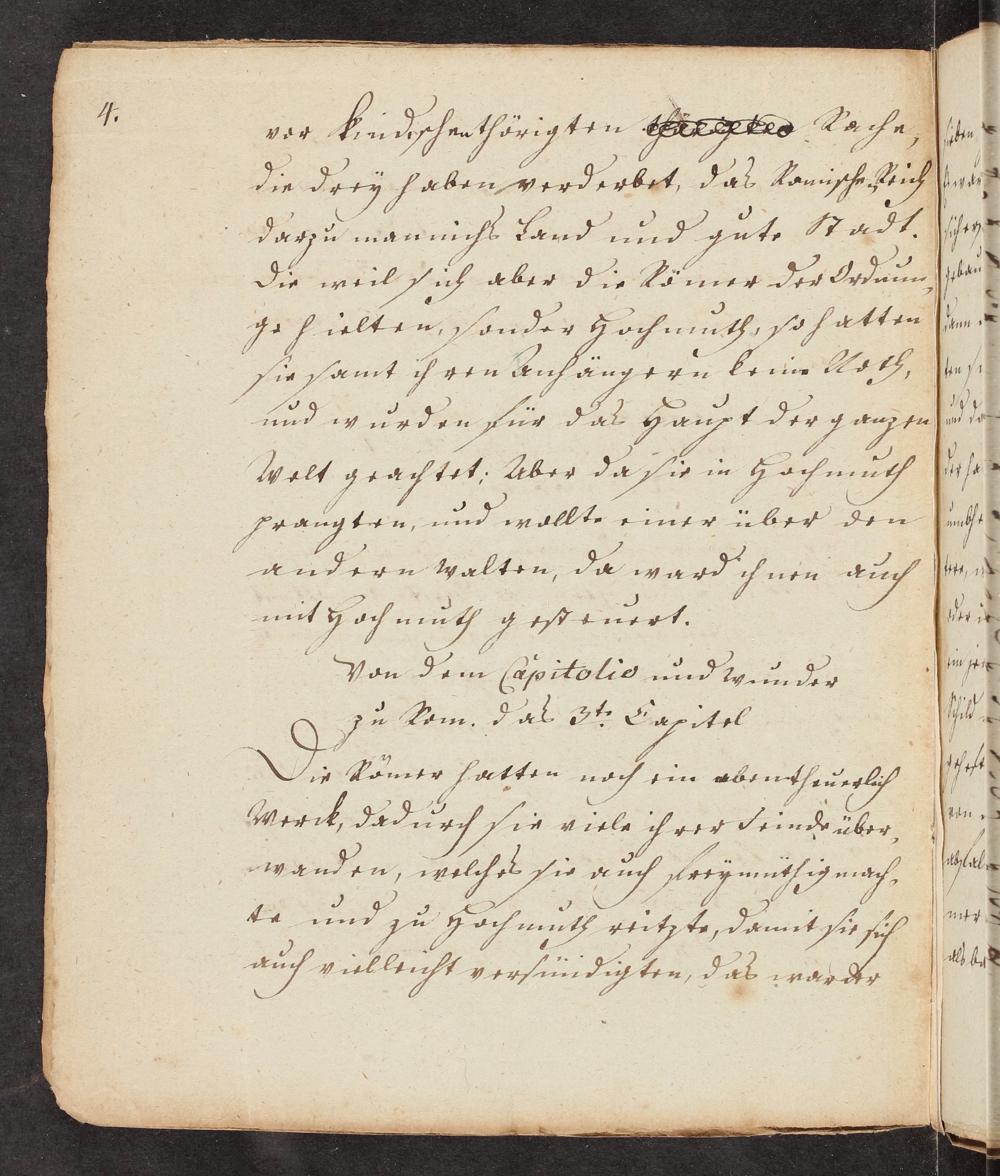 4.
vor kindischen thörigten Rache,
die drey haben verderbet, das Römische Reich
darzu mannichs Land und gute Stadt.
Die weil sich aber die Römer der Ordnun¬
ge hielten, sonder Hochmuth, so hatten
sie samt ihren Anhängern keine Noth,
und wurden für das Haupt der ganzen
Welt geachtet; Aber da sie in Hochmuth
prangten, und wollte einer über den
andern walten, da ward ihnen auch
mit Hochmuth gesteuert.
Von dem Capitolio und Wunder
zu Rom. das 3te Capitel
Die Römer hatten noch ein abentheuerlich
Werck, dadurch sie viele ihrer Feinde über¬
wanden, welches sie auch freymüthig mach¬
te und zu Hochmuth reitzte, damit sie sich
auch vielleicht versündigten, das war der